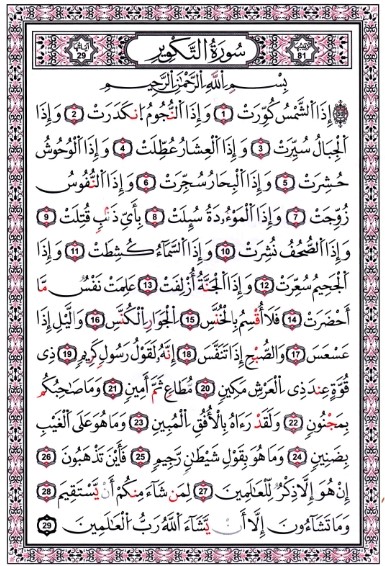 آياتها 29 سُورَةُ التَّكْوِيرِ 81
بِسْمِ اللَّهِ الرَّحْمَٰنِ الرَّحِيمِ
إِذَا الشَّمْسُ كُوِّرَتْ 1 وَإِذَا النُّجُومُ انكَدَرَتْ 2 وَإِذَا
الْجِبَالُ سُيِّرَتْ 3 وَإِذَا الْعِشَارُ عُطِّلَتْ 4 وَإِذَا الْوُحُوشُ
حُشِرَتْ 5 وَإِذَا الْبِحَارُ سُجِّرَتْ 6 وَإِذَا النُّفُوسُ
زُوِّجَتْ 7 وَإِذَا الْمَوْءُودَةُ سُئِلَتْ 8 بِأَيِّ ذَنبٍ قُتِلَتْ 9
وَإِذَا الصُّحُفُ نُشِرَتْ 10 وَإِذَا السَّمَاءُ كُشِطَتْ 11 وَإِذَا
الْجَحِيمُ سُعِّرَتْ 12 وَإِذَا الْجَنَّةُ أُزْلِفَتْ 13 عَلِمَتْ نَفْسٌ مَّا
أَحْضَرَتْ 14 فَلَا أُقْسِمُ بِالْخُنَّسِ 15 الْجَوَارِ الْكُنَّسِ 16 وَاللَّيْلِ إِذَا
عَسْعَسَ 17 وَالصُّبْحِ إِذَا تَنَفَّسَ 18 إِنَّهُ لَقَوْلُ رَسُولٍ كَرِيمٍ 19 ذِي
قُوَّةٍ عِندَ ذِي الْعَرْشِ مَكِينٍ 20 مُّطَاعٍ ثَمَّ أَمِينٍ 21 وَمَا صَاحِبُكُم
بِمَجْنُونٍ 22 وَلَقَدْ رَءَاهُ بِالْأُفُقِ الْمُبِينِ 23 وَمَا هُوَ عَلَى الْغَيْبِ
بِضَنِينٍ 24 وَمَا هُوَ بِقَوْلِ شَيْطَانٍ رَّجِيمٍ 25 فَأَيْنَ تَذْهَبُونَ 26
إِنْ هُوَ إِلَّا ذِكْرٌ لِّلْعَالَمِينَ 27 لِمَن شَاءَ مِنكُمْ أَن يَسْتَقِيمَ 28
وَمَا تَشَاءُونَ إِلَّا أَن يَشَاءَ اللَّهُ رَبُّ الْعَالَمِينَ 29